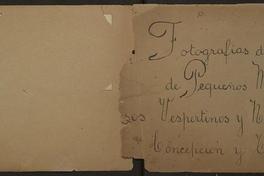 Fotografías d
de Pequeños M
sos Vespertinos y N
Concepción y